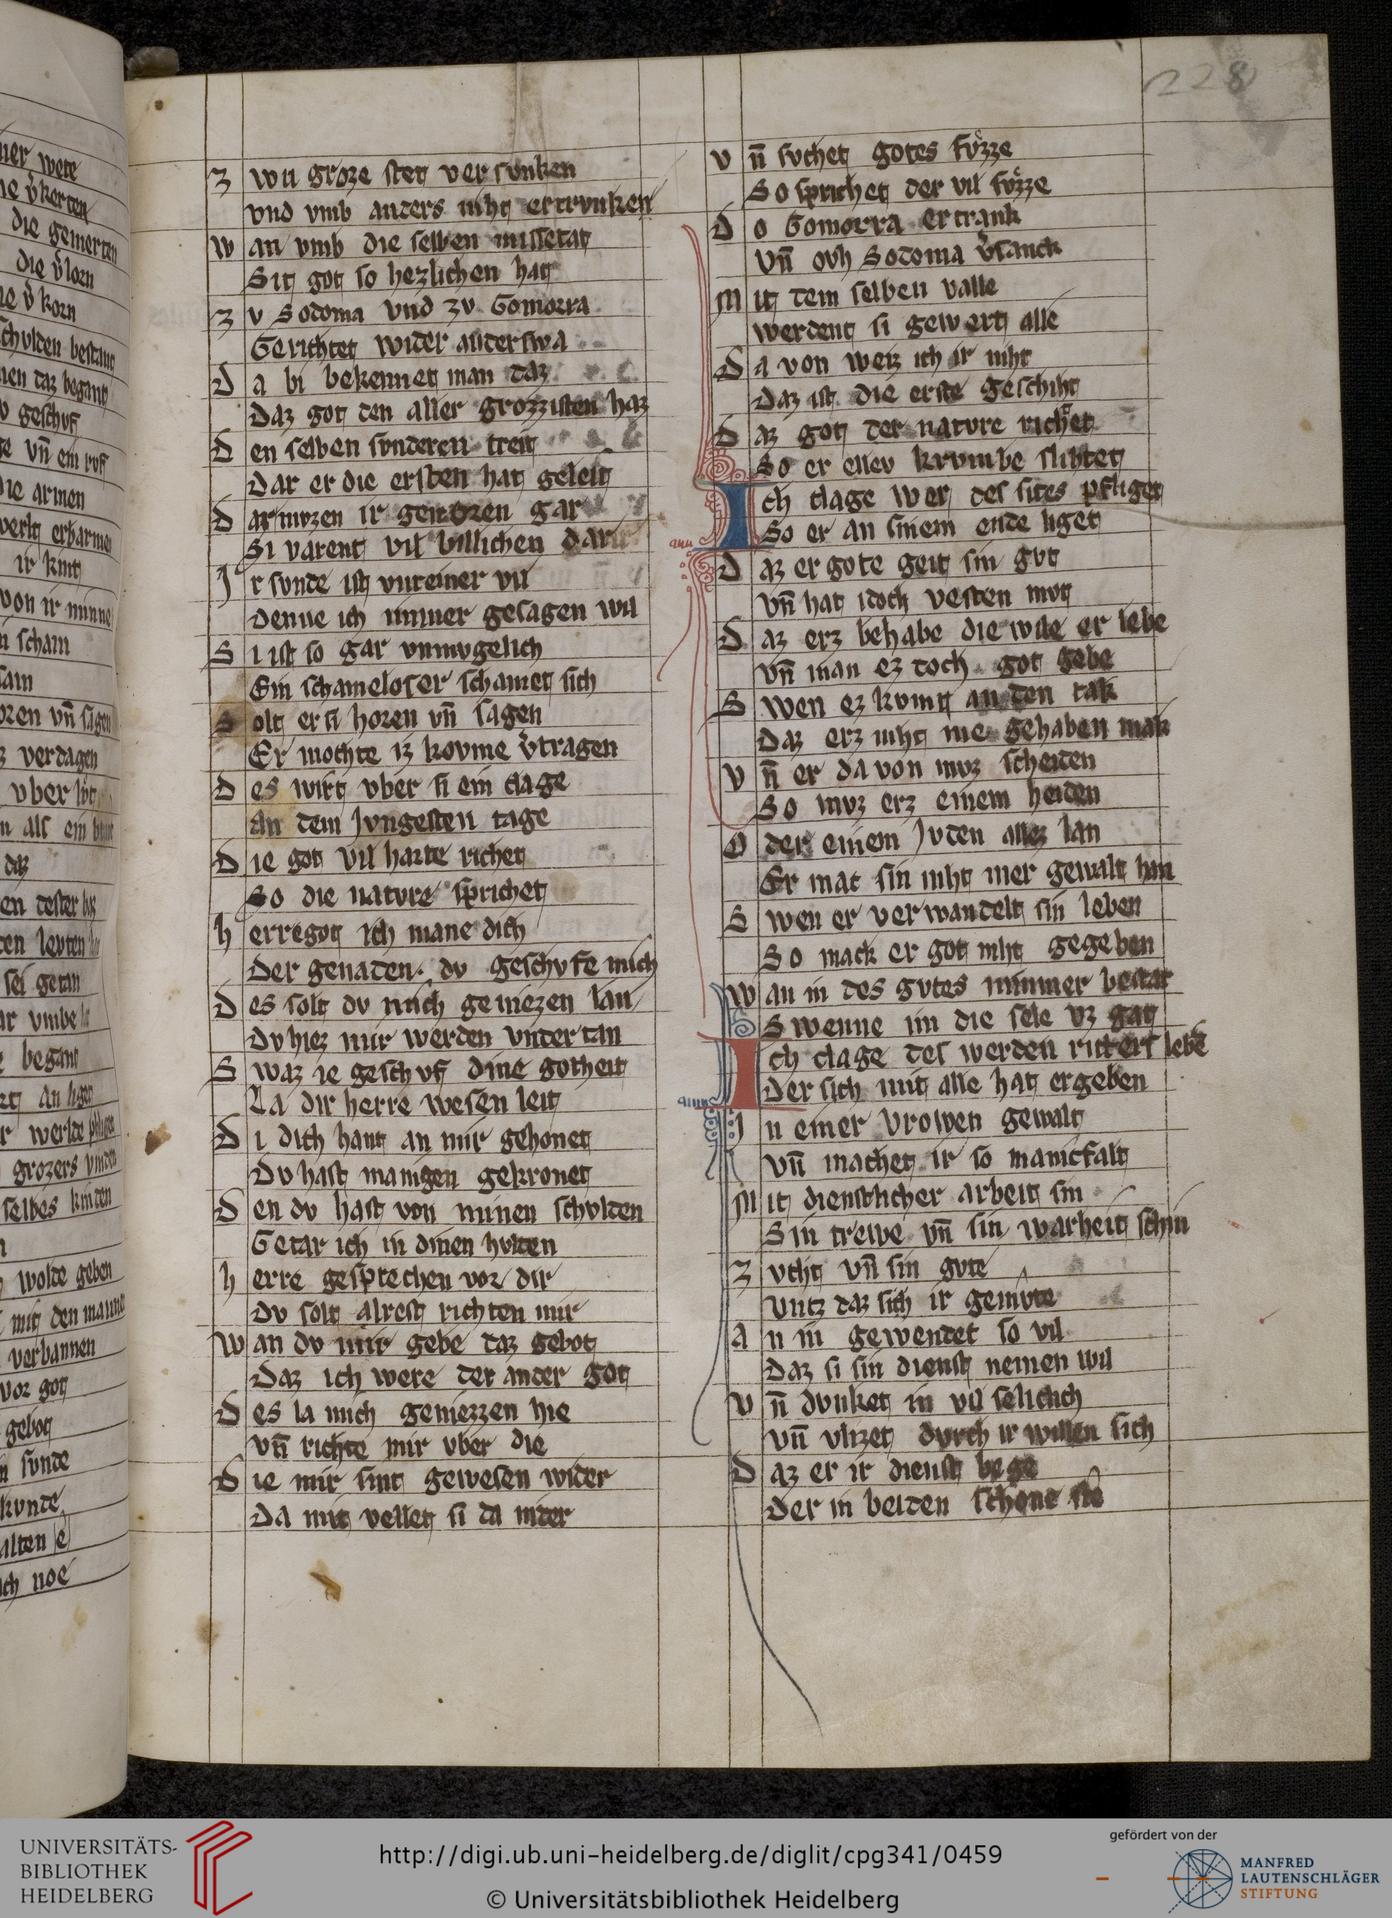 ner wete
die gemerten
die v̓lorn
v̓korn
schvlden bestant
nen daz begant
geschvf
vn̄ ein rvf
die armen
werlt erbarmen
ir kint
von ir minne
scham
sam
horen vn̄ sagen
verdagen
vber
n als ein
daz
en dester baz
ten levten
sei getan
ar vmbe
began
werlde
grozers
selbes kinden
wolde geben
mit den manne
verbannen
vor got
gebot
svnde
kvnde
alten e
ch noe
Zwu groze stet versvnken
Vnd vmb anders niht ertrvnken
Wan vmb die selben missetat
Sit got so hezlichen hat
Zv Sodoma vnd zv Gomorra
Gerichtet wider anderswa
Da bi bekennet man daz
Daz got den aller grozzisten haz
Den selben svnderen treit
Dar er die ersten hat geleit
Dar mvzen ir genozen gar
Si varent vil billichen dar
Ir svnde ist vnreiner vil
Denne ich immer gesagen wil
Si ist so gar vnmvgelich
Ein schameloser schamet sich
Solt er si horen vn̄ sagen
Er mochte iz kovme v̓tragen
Des wirt vber si ein clage
An dem Jvngesten tage
Die got vil harte richet
So die natvre sprichet
herre got ich mane dich
Der genaden dv geschvfe mich
Des solt dv mich geniezen lan
Dv hiez mir werden vnter tan
Swaz ie geschvf dine gotheit
La dir herre wesen leit
Di dich hant an mir gehonet
Dv hast manigen gekronet
Den dv hast von minen schvlden
Getar ich in dinen hvlden
herre gesprechen vor dir
Dv solt alrest richten mir
Wan dv mir gebe daz gebot
Daz ich were der ander got
Des la mich geniezzen hie
Vn̄ richte mir vber die
Die mir sint gewesen wider
Da mit vellet si da nider
228
Vn̄ svchet gotes fvͤzze
So sprichet der vil svͤzze
Do Gomorra ertrank
Vn̄ ovh Sodoma v̓sanck
Mit dem selben valle
Werdent si gewert alle
Da von weiz ich ir niht
Daz ist die erste geschiht
Daz got der natvre richtet
So er ellev krvmbe slihtet
Ich clage wer des sites pfliget
So er an sinem ende liget
Daz er gote geit sin gvt
Vn̄ hat idoch vesten mvt
Daz erz behabe die wile er lebe
Vn̄ man ez doch got gebe
Swen ez kvmt an den tak
Daz erz niht me gehaben mak
Vn̄ er da von mvz scheiden
So mvz erz einem heiden
Oder einem Jvden allez lan
Er mac sin niht mer gewalt han
Swen er verwandelt sin leben
So mack er got niht gegeben
Wan in des gvtes nimmer bestat
Swenne im die sele vz gat
Ich clage des werden ritters lebē
Der sich mit alle hat ergeben
In einer vrowen gewalt
Vn̄ machet ir so manicfalt
Mit dienstlicher arbeit sin
Sin trewe vn̄ sin warheit schin
Zvcht vn̄ sin gvte
Vntz daz sich ir gemvte
An in gewendet so vil
Daz si sin dienst nemen wil
Vn̄ dvnket in vil selicklich
Vn̄ vlizet dvrch ir willen sich
Daz er ir dienst bege
Der in beiden schone ste
UNIVERSITÄTS-
BIBLIOTHEK
HEIDELBERG
http://digi.ub.uni-heidelberg.de/diglit/cpg341/0459
© Universitätsbibliothek Heidelberg
gefördert von der
MANFRED
LAUTENSCHLÄGER
STIFTUNG